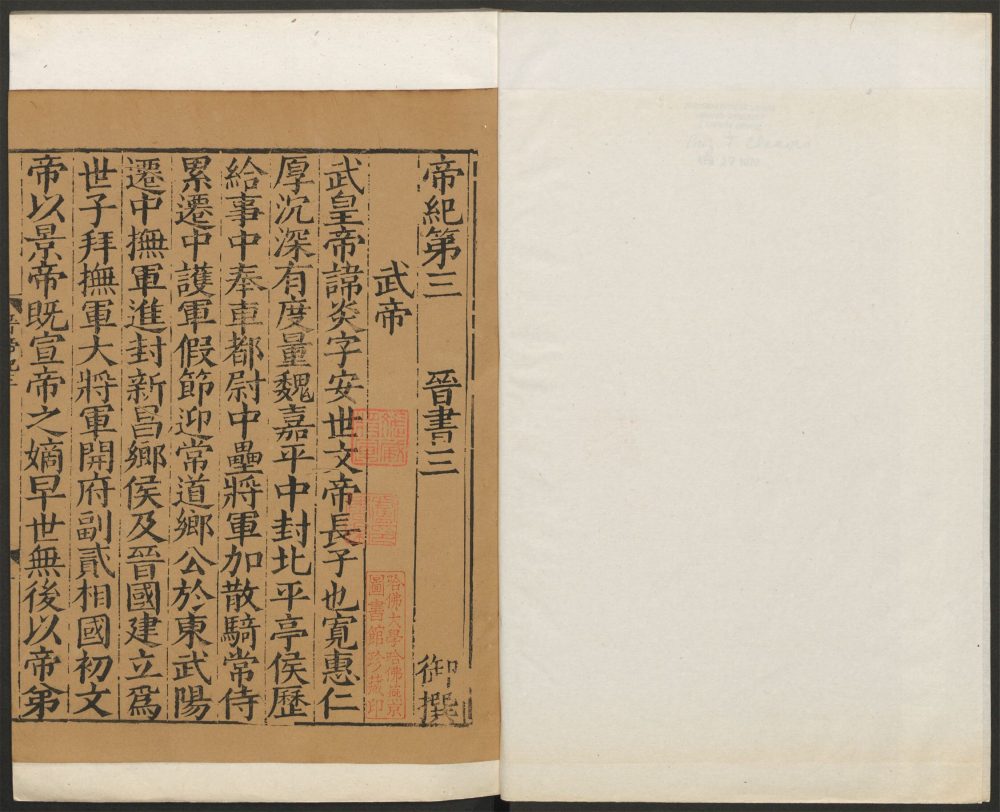 帝紀第三 晉書三 御撰
武帝
武皇帝諱炎字安世文帝長子也寬惠仁
厚沉深有度量魏嘉平中封北平亭侯歷
給事中奉車都尉中壘將軍加散騎常侍
累遷中護軍假節迎常道鄉公於東武陽
遷中撫軍進封新昌鄉侯及晉國建立為
世子拜撫軍大將軍開府副貳相國初文
帝以景帝既宣帝之嫡早世無後以帝弟
哈佛大學哈佛燕京
圖書館珍藏印